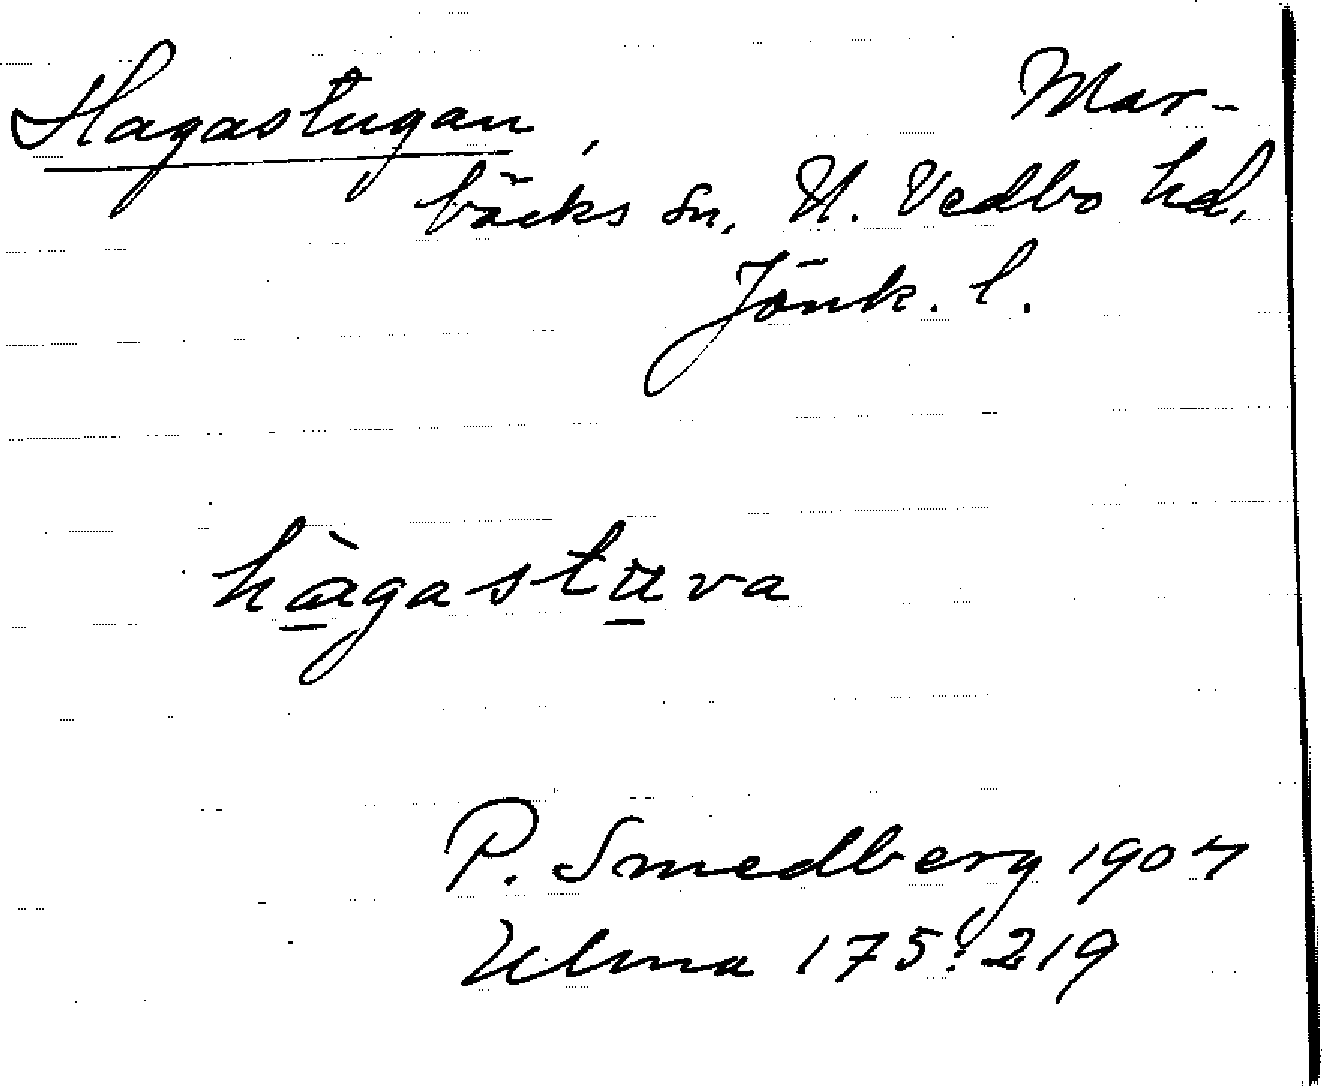 Hagastugan, Mar-
bäcks sn, N. Vedbo hd,
Jönk. l.
hàgastuva
P. Smedberg 1907
Ulma 175:219